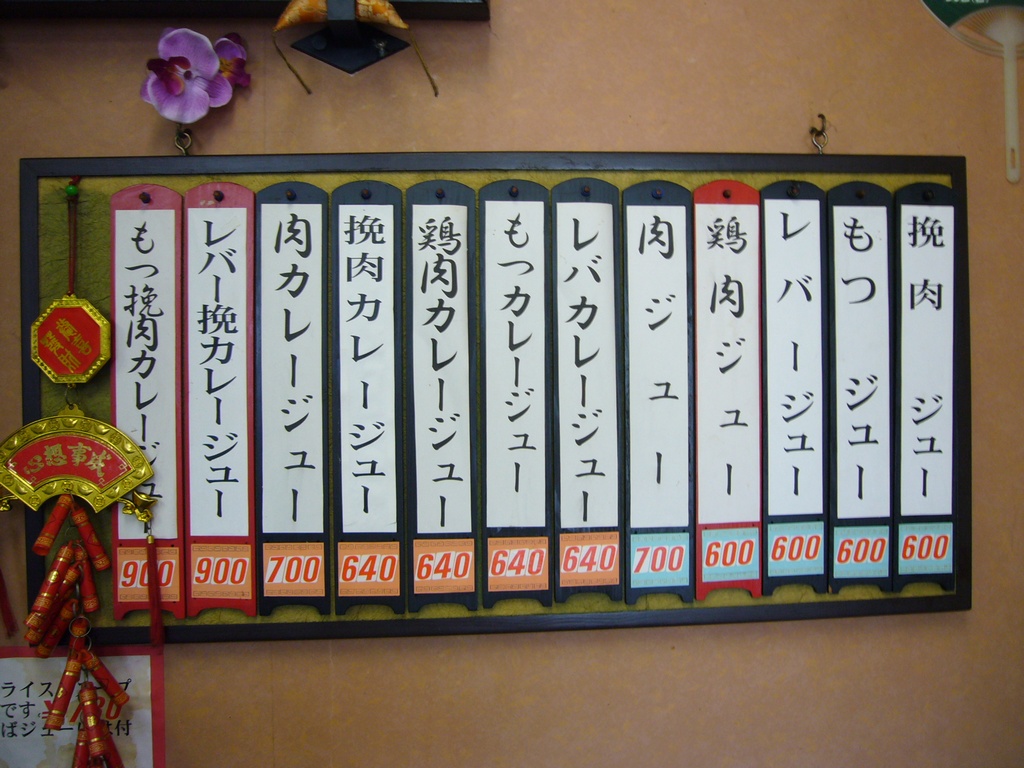 挽肉ジュー
600
もつジュー
600
レバージュー
600
鶏肉ジュー
600
肉ジュー
700
レバカレージュー
640
もつカレージュー
640
鶏肉カレージュー
640
挽肉カレージュー
640
肉カレージュー
700
レバー挽カレージュー
900
もつ挽肉カレージュー
900
心想事成
ライス
です。
ばジュー
付